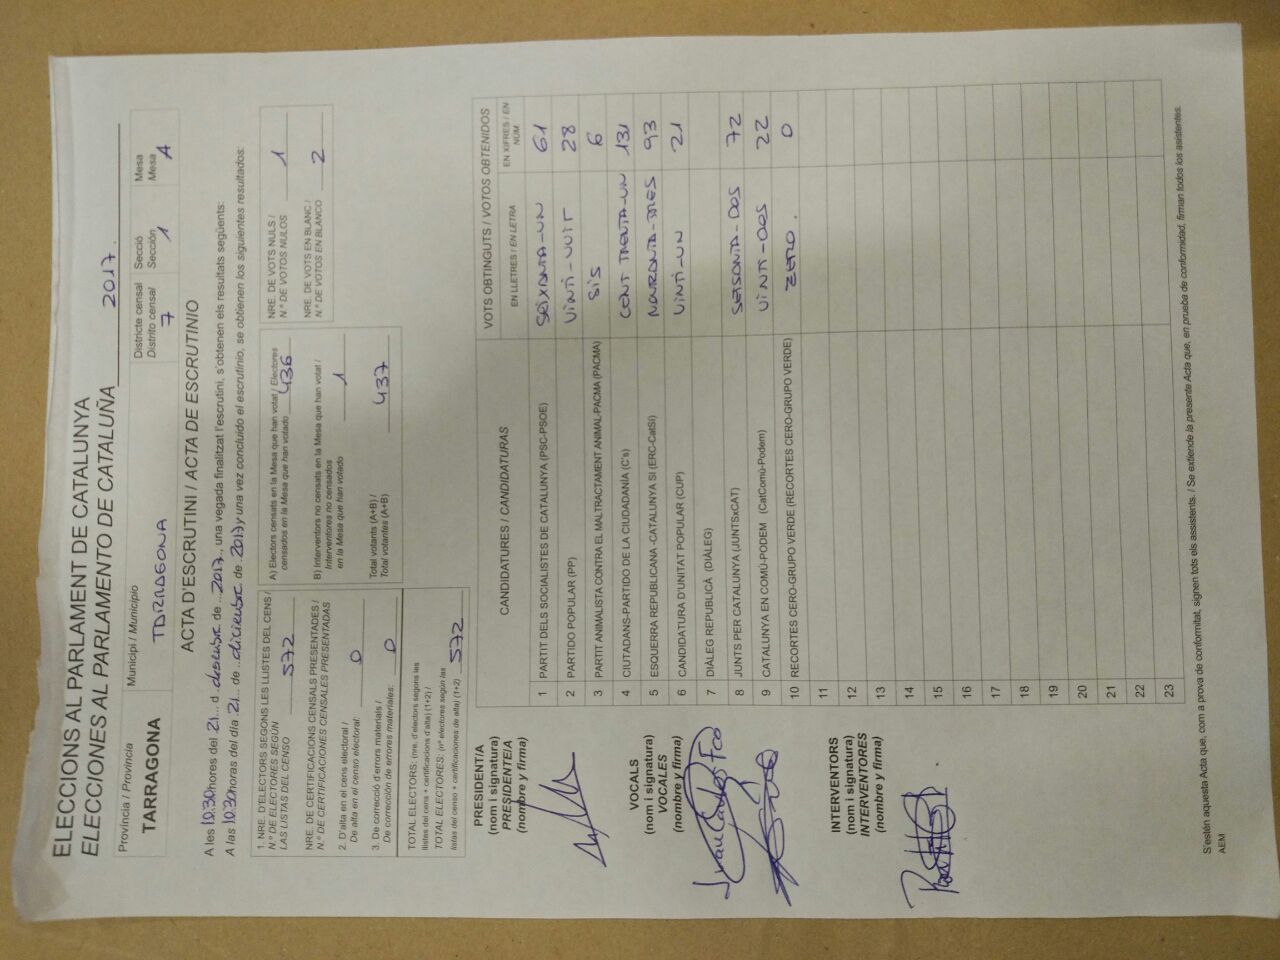 ELECCIONS AL PARLAMENT DE CATALUNYA
ELECCIONES AL PARLAMENTO DE CATALUÑA 2017.
Província / Provincia
TARRAGONA
Municipi / Municipio
TARRAGONA
Districte censal
Distrito censal
7
Secció
Sección
1
Mesa
Mesa
A
ACTA D'ESCRUTINI / ACTA DE ESCRUTINIO
A les 10:30 hores del 21 d desembre de 2017, una vegada finalitzat l'escrutini, s'obtenen els resultats següents:
A las 10:30 horas del día 21 de diciembre de 2017 y una vez concluido el escrutinio, se obtienen los siguientes resultados:
1. NRE. D'ELECTORS SEGONS LES LLISTES DEL CENS /
N.º DE ELECTORES SEGÚN
LAS LISTAS DEL CENSO 572
NRE. DE CERTIFICACIONS CENSALS PRESENTADES /
N.º DE CERTIFICACIONES CENSALES PRESENTADAS
2. D'alta en el cens electoral /
De alta en el censo electoral: 0
3. De correcció d'errors materials /
De corrección de errores materiales: 0
TOTAL ELECTORS: (nre. d'electors segons les
llistes del cens + certificacions d'alta) (1+2) /
TOTAL ELECTORES: (nº electores según las
listas del censo + certificaciones de alta) (1+2) 572
A) Electors censats en la Mesa que han votat / Electores
censados en la Mesa que han votado 436
B) Interventors no censats en la Mesa que han votat /
Interventores no censados
en la Mesa que han votado 1
Total votants (A+B) /
Total votantes (A+B) 437
NRE. DE VOTS NULS /
N.º DE VOTOS NULOS 1
NRE. DE VOTS EN BLANC /
N.º DE VOTOS EN BLANCO 2
CANDIDATURES / CANDIDATURAS
VOTS OBTINGUTS / VOTOS OBTENIDOS
EN LLETRES / EN LETRA
EN XIFRES / EN NÚM.
1 PARTIT DELS SOCIALISTES DE CATALUNYA (PSC-PSOE) SEIXANTA-UN 61
2 PARTIDO POPULAR (PP) VINTI-VUIT 28
3 PARTIT ANIMALISTA CONTRA EL MALTRACTAMENT ANIMAL-PACMA (PACMA) SIS 6
4 CIUTADANS-PARTIDO DE LA CIUDADANÍA (C's) CENT TRENTA-UN 131
5 ESQUERRA REPUBLICANA -CATALUNYA SÍ (ERC-CatSí) NORONTA-TRES 93
6 CANDIDATURA D'UNITAT POPULAR (CUP) VINTI-UN 21
7 DIÀLEG REPUBLICÀ (DIÀLEG)
8 JUNTS PER CATALUNYA (JUNTSxCAT) SETSONTA-DOS 72
9 CATALUNYA EN COMÚ-PODEM (CatComú-Podem) VINTI-DOS 22
10 RECORTES CERO-GRUPO VERDE (RECORTES CERO-GRUPO VERDE) ZERO. 0
11
12
13
14
15
16
17
18
19
20
21
22
23
PRESIDENT/A
(nom i signatura)
PRESIDENTE/A
(nombre y firma)
VOCALS
(nom i signatura)
VOCALES
(nombre y firma)
Juan Carlos Fco
INTERVENTORS
(nom i signatura)
INTERVENTORES
(nombre y firma)
S'estén aquesta Acta que, com a prova de conformitat, signen tots els assistents. / Se extiende la presente Acta que, en prueba de conformidad, firman todos los asistentes.
AEM